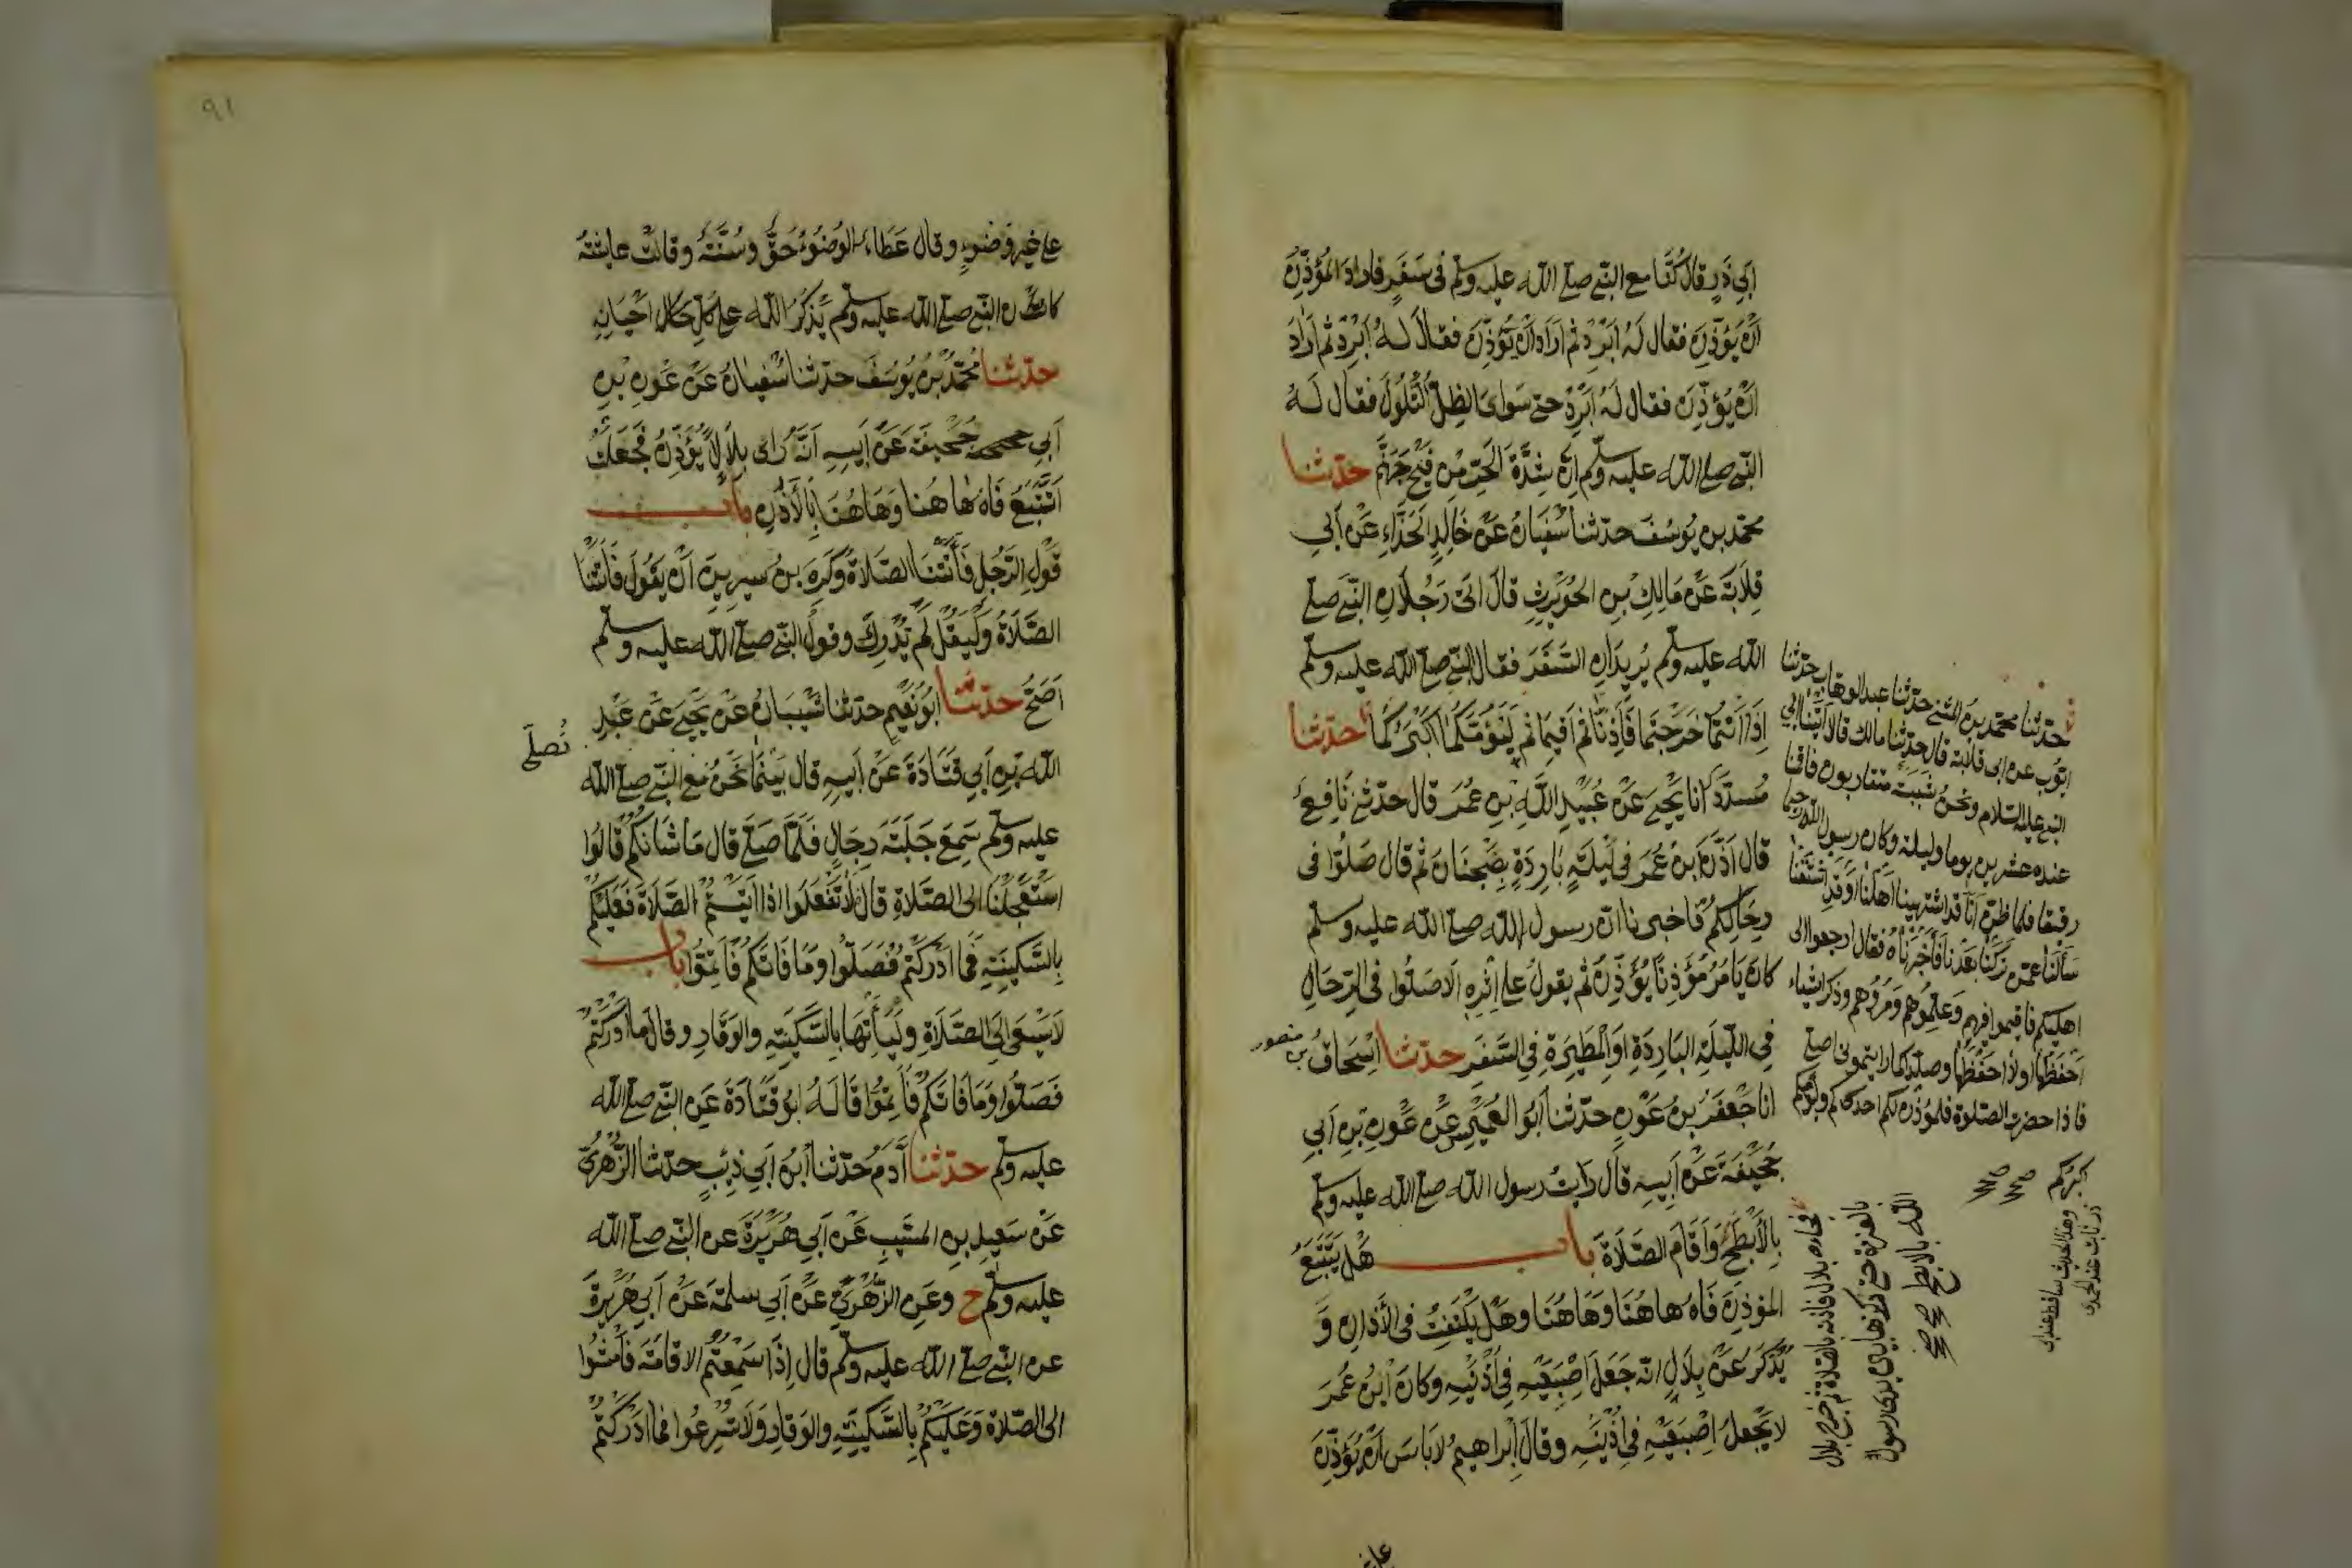 ابي ذر قال كنا مع النبي صلى الله عليه وسلم في سفر فاراد المؤذن
ان يؤذن فقال له ابرد ثم اراد ان يؤذن فقال له ابرد ثم اراد
ان يؤذن فقال له ابرد حتى ساوى الظل التلول فقال له
النبي صلى الله عليه وسلم ان شدة الحر من فيح جهنم حدثنا
محمد بن يوسف حدثنا سفيان عن خالد الحذاء عن ابي
قلابة عن مالك بن الحويرث قال اتى رجلان النبي صلى
الله عليه وسلم يريدان السفر فقال النبي صلى الله عليه وسلم
اذا انتما خرجتما فأذنا ثم اقيما ثم ليؤمكما اكبركما حدثنا
مسدد انا يحيى عن عبيد الله بن عمر قال حدثني نافع
قال اذن ابن عمر في ليلة باردة بضجنان ثم قال صلوا في
رحالكم فاخبرنا ان رسول الله صلى الله عليه وسلم
كان يامر مؤذنا يؤذن ثم يقول على اثره الا صلوا في الرحال
في الليلة الباردة او المطيرة في السفر حدثنا اسحاق
بن منصور
انا جعفر بن عون حدثنا ابو العميس عن عون بن ابي
جحيفة عن ابيه قال رايت رسول الله صلى الله عليه وسلم
بالأبطح واقام الصلاة باب هل يتتبع
المؤذن فاه هاهنا وهاهنا وهل يلتفت في الأذان و
يذكر عن بلال انه جعل اصبعيه في اذنيه وكان ابن عمر
لا يجعل اصبعيه في اذنيه وقال ابراهيم لا باس ان يؤذن
حدثنا محمد بن المثنى حدثنا عبد الوهاب حدثنا
ايوب عن ابي قلابة قال حدثنا مالك قال اتينا الى
النبي عليه السلام ونحن شببة متقاربون فاقمنا
عنده عشرين يوما وليلة وكان رسول الله رحيما
رفيقا فلما ظن انا قد اشتهينا اهلنا او قد اشتقنا
سألنا عمن تركنا بعدنا فأخبرناه فقال ارجعوا الى
اهليكم فاقيموا فيهم وعلموهم ومروهم وذكر اشياء
احفظها او لا احفظها وصلوا كما رايتموني اصلي
فاذا حضرت الصلوة فليؤذن لكم احدكم وليؤمكم
اكبركم صح صح
فجاءه بلال فاذنه بالصلاة ثم خرج بلال
بالعنزة حتى ركزها بين يدي رسول
الله بالابطح صح صح
على غير وضوء وقال عطاء الوضوء حق وسنة وقالت عايشة
كان النبي صلى الله عليه وسلم يذكر الله على كل احيانه
حدثنا محمد بن يوسف حدثنا سفيان عن عون بن
ابي جحيفة عن ابيه انه راى بلالا يؤذن فجعلت
اتتبع فاه هاهنا وهاهنا بالأذان باب
قول الرجل فأتتنا الصلاة وكره بن سيرين ان يقول فاتتنا
الصلاة وليقل لم ندرك وقول النبي صلى الله عليه وسلم
اصح حدثنا ابو نعيم حدثنا شيبان عن يحيى عن عبد
نصلي
الله بن ابي قتادة عن ابيه قال بينما نحن مع النبي صلى الله
عليه وسلم سمع جلبة رجال فلما صلى قال ما شانكم قالوا
استعجلنا الى الصلاة قال لا تفعلوا اذا اتيتم الصلاة فعليكم
بالسكينة فما ادركتم فصلوا وما فاتكم فأتموا باب
لا يسعى الى الصلاة وليأتها بالسكينة والوقار وقال ما أدركتم
فصلوا وما فاتكم فأتموا قاله ابو قتادة عن النبي صلى الله
عليه وسلم حدثنا آدم حدثنا ابن ابي ذئب حدثنا الزهري
عن سعيد بن المسيب عن ابي هريرة عن النبي صلى الله
عليه وسلم ح وعن الزهري عن ابي سلمة عن ابي هريرة
عن النبي صلى الله عليه وسلم قال اذا سمعتم الاقامة فامشوا
الى الصلاة وعليكم بالسكينة والوقار ولا تسرعوا فما ادركتم
٩١